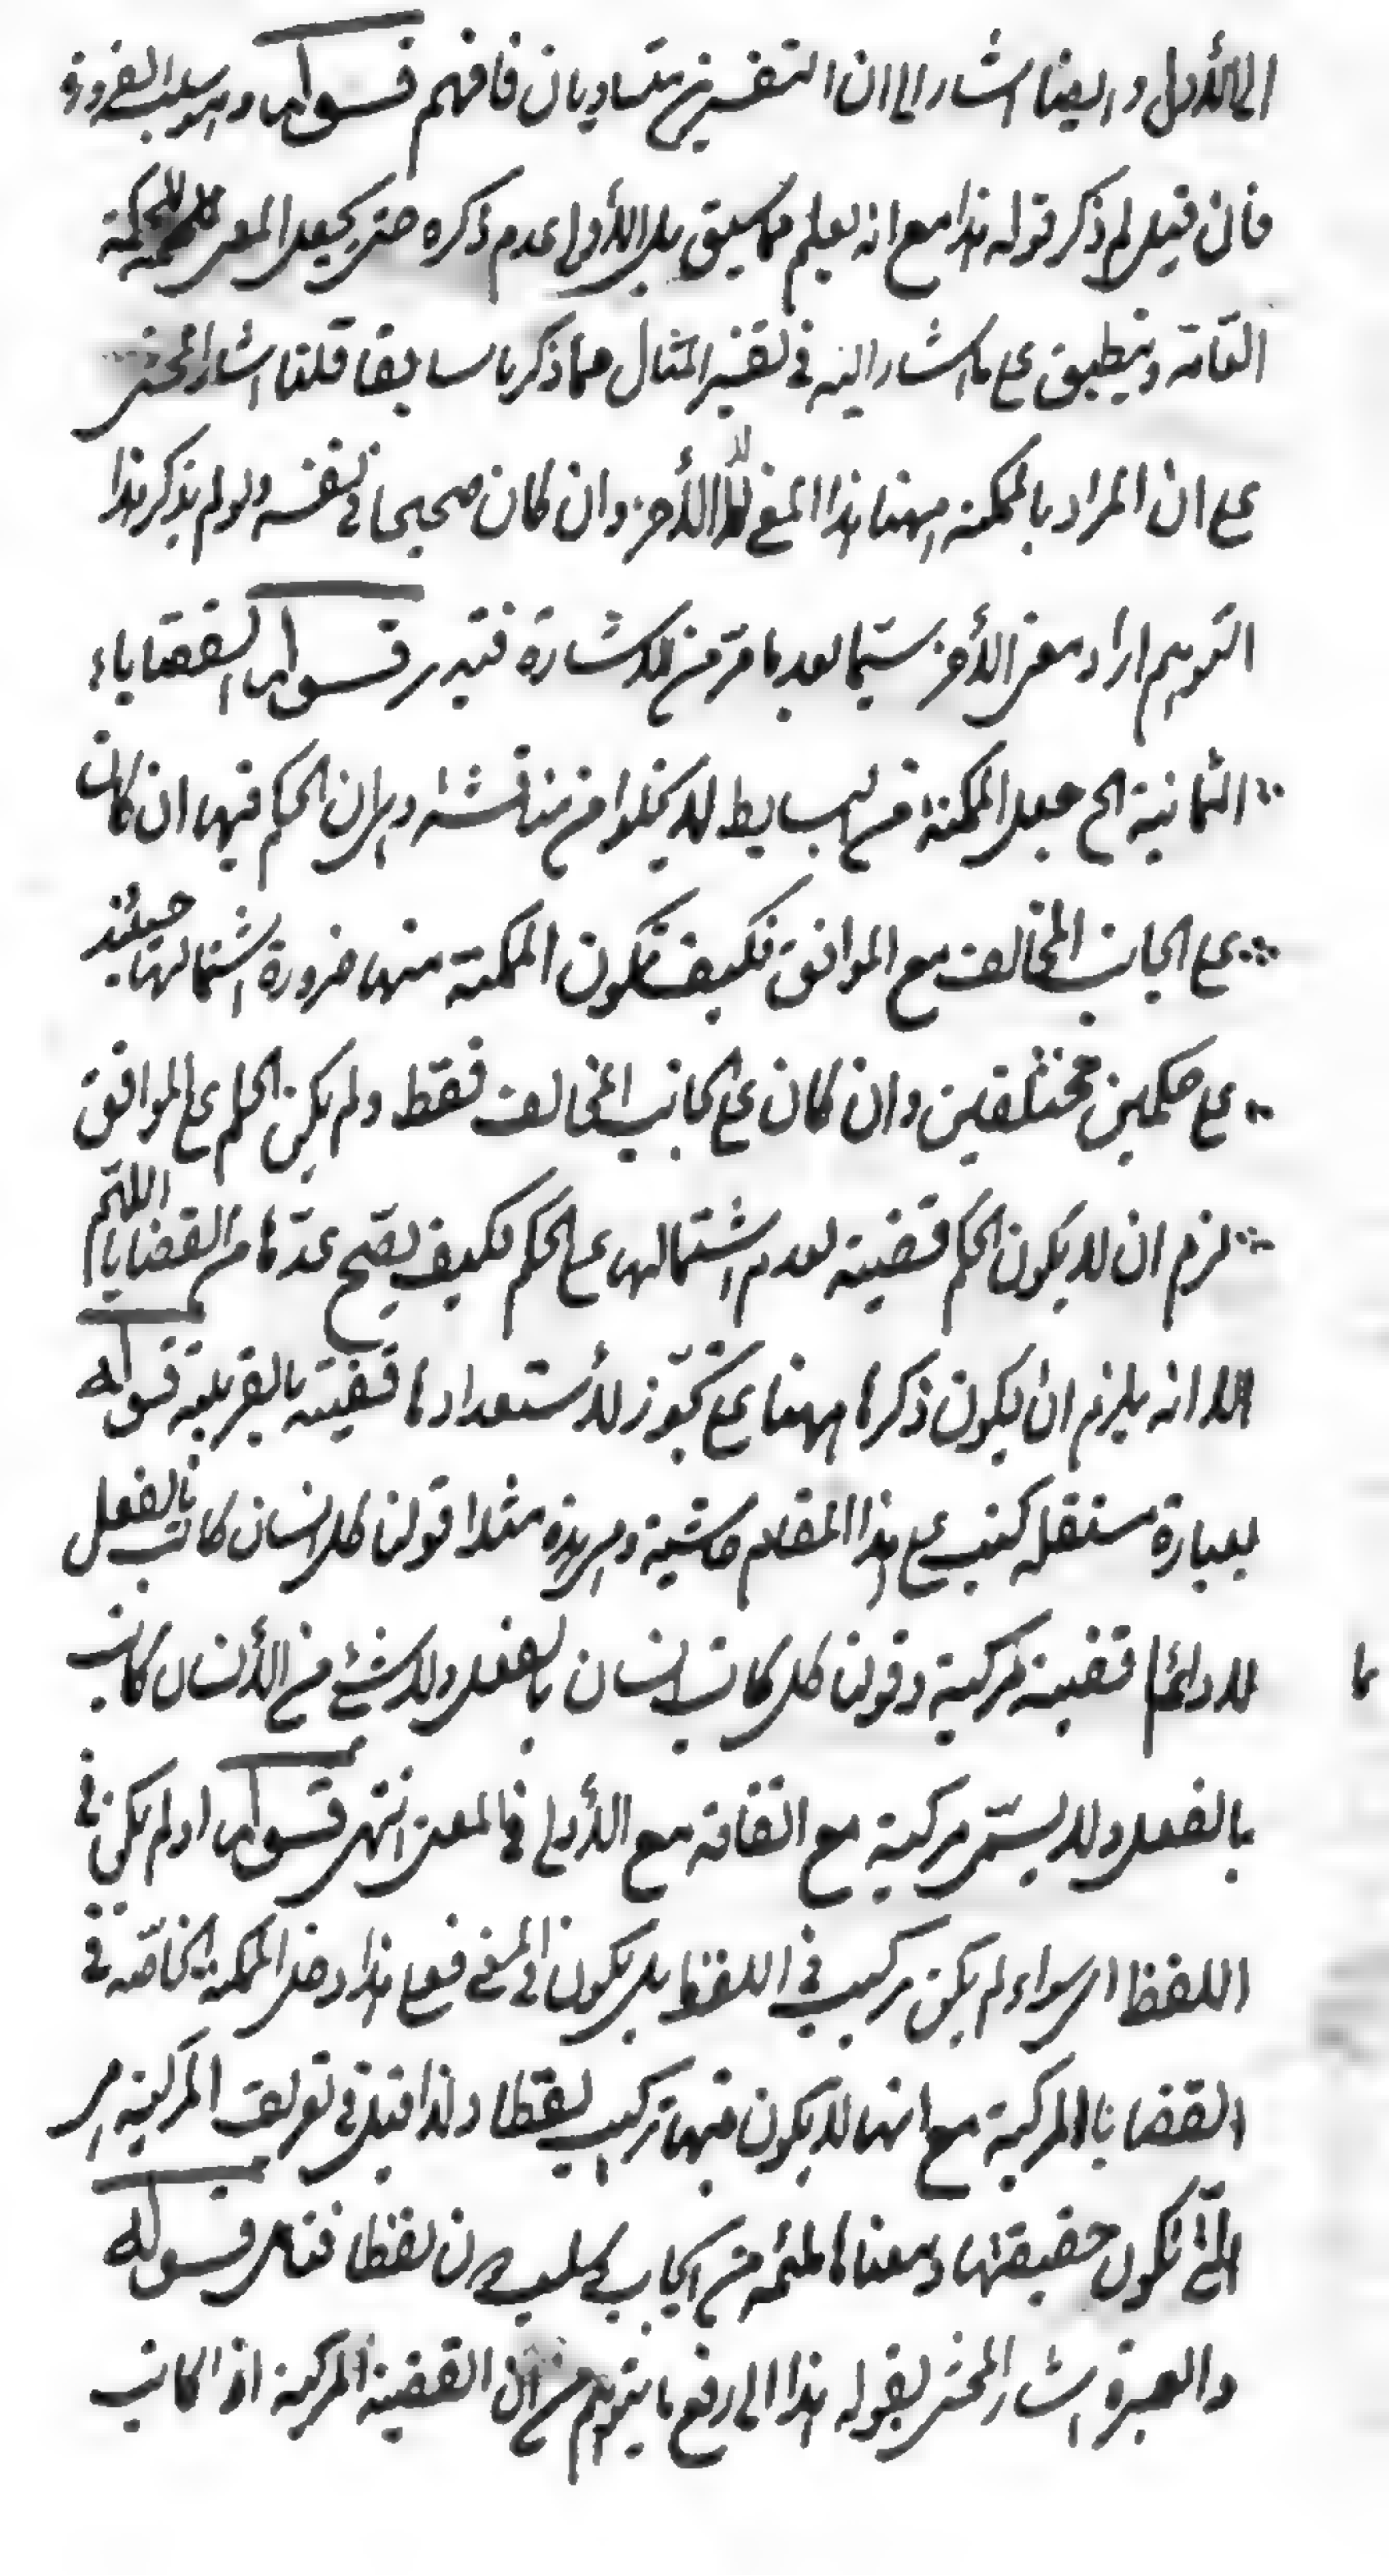 الى الأول وايضا اشار الى ان التفسيرين متساويان فافهم قوله وهو سلب الضرورة
فان قيل لم ذكر قوله هذا مع انه يعلم مما سبق بل الأولى عدم ذكره حتى يجعل المعنى للممكنة
العامة وينطبق على ما اشار اليه في تفسير المثال مما ذكرنا سابقا قلنا اشار المحشى
على ان المراد بالممكنة ههنا هذا المعنى لا الأخر وان كان صحيحا في نفسه ولو لم يذكر هذا
التوهم اراد معنى الأخر سيما بعد ما مر من الاشارة فتدبر قوله القضاياء
الثمانية الخ جعل الممكنة من البسايط لا يخلوا من مناقشة وهى ان الحكم فيها ان كان
على الجانب المخالف مع الموافق فكيف تكون الممكنة منها ضرورة اشتمالها حينئذ
على حكمين مختلفين وان كان على الجانب المخالف فقط ولم يكن الحكم على الموافق
لزم ان لا يكون الحكم قضية لعدم اشتمالها على الحكم فكيف يصح عدّها من القضايا اللهم
الا انه يلزم ان يكون ذكرها ههنا على تجوّز لأستعدادها قضية بالقريبة قوله
بعبارة مستقلة كتب على هذا المقام حاشية وهى هذه مثلا قولنا كل انسان كاتب بالفعل
لا دائما قضية مركبة وقولنا كل كاتب انسان بالفعل ولا شئ من الأنسان كاتب
بالفعل ولا يسمّى مركبة مع اتفاقه مع الأولى في المعنى انتهى قوله او لم يكن في
اللفظ اى سواء لم يكن تركيب في اللفظ بل يكون في المعنى فعلى هذا دخل الممكنة الخاصّة في
القضايا المركبة مع انها لا يكون فيها تركيب لفظا ولذا قيل في تعريف المركبة هى
التى تكون حقيقتها ومعناها ملتئمة من ايجاب وسلب دون لفظا فتأمل قوله
والعبرة اشار المحشى بقوله هذا الى رفع ما يتوهم من ان القضية المركبة اذا كانت